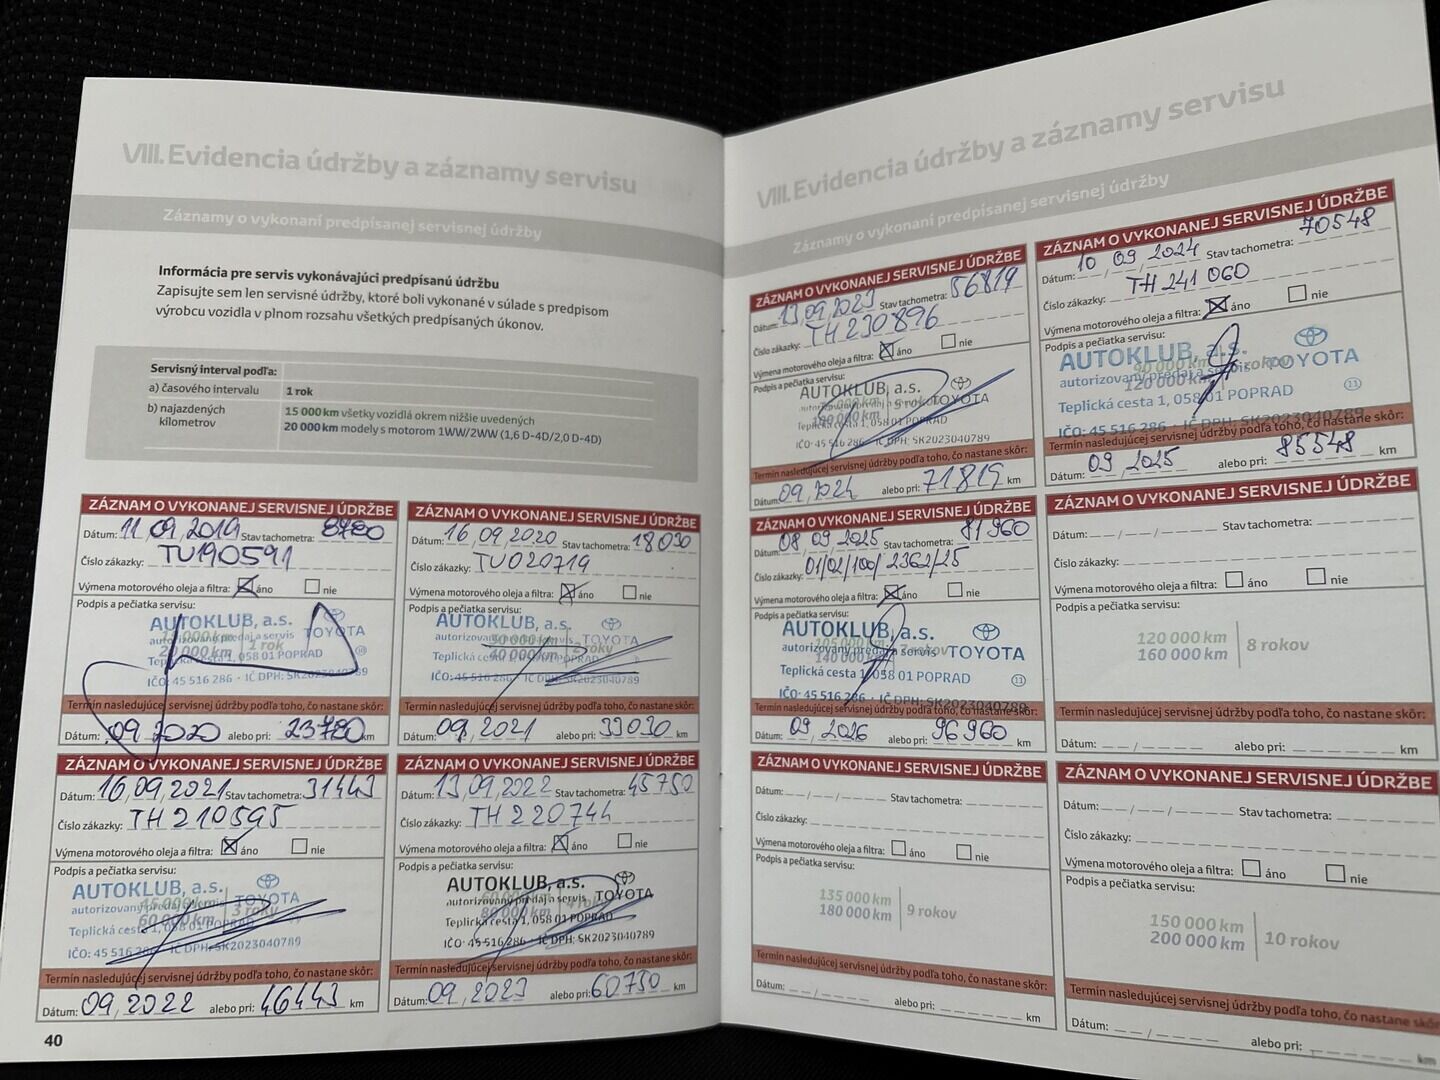 VIII. Evidencia údržby a záznamy servisu
Záznamy o vykonaní predpísanej servisnej údržby
Informácia pre servis vykonávajúci predpísanú údržbu
Zapisujte sem len servisné údržby, ktoré boli vykonané v súlade s predpisom
výrobcu vozidla v plnom rozsahu všetkých predpísaných úkonov.
Servisný interval podľa:
a) časového intervalu 1 rok
b) najazdených kilometrov 15 000 km všetky vozidlá okrem nižšie uvedených
20 000 km modely s motorom 1WW/2WW (1,6 D-4D/2,0 D-4D)
ZÁZNAM O VYKONANEJ SERVISNEJ ÚDRŽBE
Dátum: 11 09 2019 Stav tachometra: 8780
Číslo zákazky: TU190591
Výmena motorového oleja a filtra: áno nie
Podpis a pečiatka servisu:
AUTOKLUB, a.s.
autorizovaný predaj a servis TOYOTA
20 000 km 1 rok
Teplická cesta 1, 058 01 POPRAD
IČO: 45 516 286 · IČ DPH: SK2023040789
Termín nasledujúcej servisnej údržby podľa toho, čo nastane skôr:
Dátum: 09 2020 alebo pri: 23780 km
ZÁZNAM O VYKONANEJ SERVISNEJ ÚDRŽBE
Dátum: 16 09 2020 Stav tachometra: 18030
Číslo zákazky: TU020719
Výmena motorového oleja a filtra: áno nie
Podpis a pečiatka servisu:
AUTOKLUB, a.s.
autorizovaný predaj a servis TOYOTA
40 000 km 2 roky
Teplická cesta 1, 058 01 POPRAD
IČO: 45 516 286 · IČ DPH: SK2023040789
Termín nasledujúcej servisnej údržby podľa toho, čo nastane skôr:
Dátum: 09 2021 alebo pri: 33030 km
ZÁZNAM O VYKONANEJ SERVISNEJ ÚDRŽBE
Dátum: 16 09 2021 Stav tachometra: 31443
Číslo zákazky: TH 210595
Výmena motorového oleja a filtra: áno nie
Podpis a pečiatka servisu:
AUTOKLUB, a.s.
autorizovaný predaj a servis TOYOTA
45 000 km
60 000 km 3 roky
Teplická cesta 1, 058 01 POPRAD
IČO: 45 516 286 · IČ DPH: SK2023040789
Termín nasledujúcej servisnej údržby podľa toho, čo nastane skôr:
Dátum: 09 2022 alebo pri: 46443 km
ZÁZNAM O VYKONANEJ SERVISNEJ ÚDRŽBE
Dátum: 13 09 2022 Stav tachometra: 45750
Číslo zákazky: TH 220744
Výmena motorového oleja a filtra: áno nie
Podpis a pečiatka servisu:
AUTOKLUB, a.s.
autorizovaný predaj a servis TOYOTA
80 000 km
Teplická cesta 1, 058 01 POPRAD
IČO: 45 516 286 · IČ DPH: SK2023040789
Termín nasledujúcej servisnej údržby podľa toho, čo nastane skôr:
Dátum: 09 2023 alebo pri: 60750 km
40
VIII. Evidencia údržby a záznamy servisu
Záznamy o vykonaní predpísanej servisnej údržby
ZÁZNAM O VYKONANEJ SERVISNEJ ÚDRŽBE
Dátum: 13 09 2023 Stav tachometra: 56819
Číslo zákazky: TH 230896
Výmena motorového oleja a filtra: áno nie
Podpis a pečiatka servisu:
AUTOKLUB, a.s.
autorizovaný predaj a servis TOYOTA
100 000 km 5 rokov
Teplická cesta 1, 058 01 POPRAD
IČO: 45 516 286 · IČ DPH: SK2023040789
Termín nasledujúcej servisnej údržby podľa toho, čo nastane skôr:
Dátum: 09 2024 alebo pri: 71819 km
ZÁZNAM O VYKONANEJ SERVISNEJ ÚDRŽBE
Dátum: 10 09 2024 Stav tachometra: 70548
Číslo zákazky: TH 241 060
Výmena motorového oleja a filtra: áno nie
Podpis a pečiatka servisu:
AUTOKLUB, a.s.
autorizovaný predaj a servis TOYOTA
90 000 km
120 000 km rokov
Teplická cesta 1, 058 01 POPRAD 11
IČO: 45 516 286 · IČ DPH: SK2023040789
Termín nasledujúcej servisnej údržby podľa toho, čo nastane skôr:
Dátum: 09 2025 alebo pri: 85548 km
ZÁZNAM O VYKONANEJ SERVISNEJ ÚDRŽBE
Dátum: 08 09 2025 Stav tachometra: 81960
Číslo zákazky: 01/02/100/2362/25
Výmena motorového oleja a filtra: áno nie
Podpis a pečiatka servisu:
AUTOKLUB, a.s.
autorizovaný predaj a servis TOYOTA
105 000 km
140 000 km 7 rokov
Teplická cesta 1, 058 01 POPRAD 11
IČO: 45 516 286 · IČ DPH: SK2023040789
Termín nasledujúcej servisnej údržby podľa toho, čo nastane skôr:
Dátum: 09 2026 alebo pri: 96960 km
ZÁZNAM O VYKONANEJ SERVISNEJ ÚDRŽBE
Dátum: Stav tachometra:
Číslo zákazky:
Výmena motorového oleja a filtra: áno nie
Podpis a pečiatka servisu:
120 000 km
160 000 km 8 rokov
Termín nasledujúcej servisnej údržby podľa toho, čo nastane skôr:
Dátum: alebo pri: km
ZÁZNAM O VYKONANEJ SERVISNEJ ÚDRŽBE
Dátum: Stav tachometra:
Číslo zákazky:
Výmena motorového oleja a filtra: áno nie
Podpis a pečiatka servisu:
135 000 km
180 000 km 9 rokov
Termín nasledujúcej servisnej údržby podľa toho, čo nastane skôr:
Dátum: alebo pri: km
ZÁZNAM O VYKONANEJ SERVISNEJ ÚDRŽBE
Dátum: Stav tachometra:
Číslo zákazky:
Výmena motorového oleja a filtra: áno nie
Podpis a pečiatka servisu:
150 000 km
200 000 km 10 rokov
Termín nasledujúcej servisnej údržby podľa toho, čo nastane skôr:
Dátum: alebo pri: km